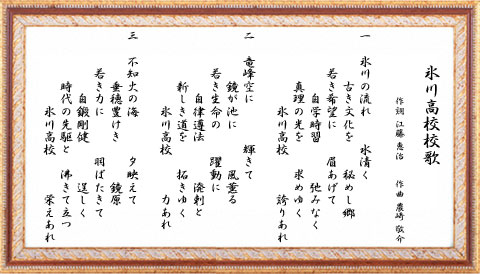 氷川高校校歌
作詞 江藤惠治 作曲 農﨑敬介
一 氷川の流れ 水清く
古き文化を 秘めし郷
若き希望に 眉あげて
自学時習 弛みなく
真理の光を 求めゆく
氷川高校 誇りあれ
二 竜峰空に 輝きて
鏡が池に 風薫る
若き生命の 躍動に
自律遵法 溌剌と
新しき道を 拓きゆく
氷川高校 力あれ
三 不知火の海 夕映えて
垂穂豊けき 鏡原
若き力に 羽ばたきて
自鍛剛健 逞しく
時代の先駆と 沸きて立つ
氷川高校 栄えあれ